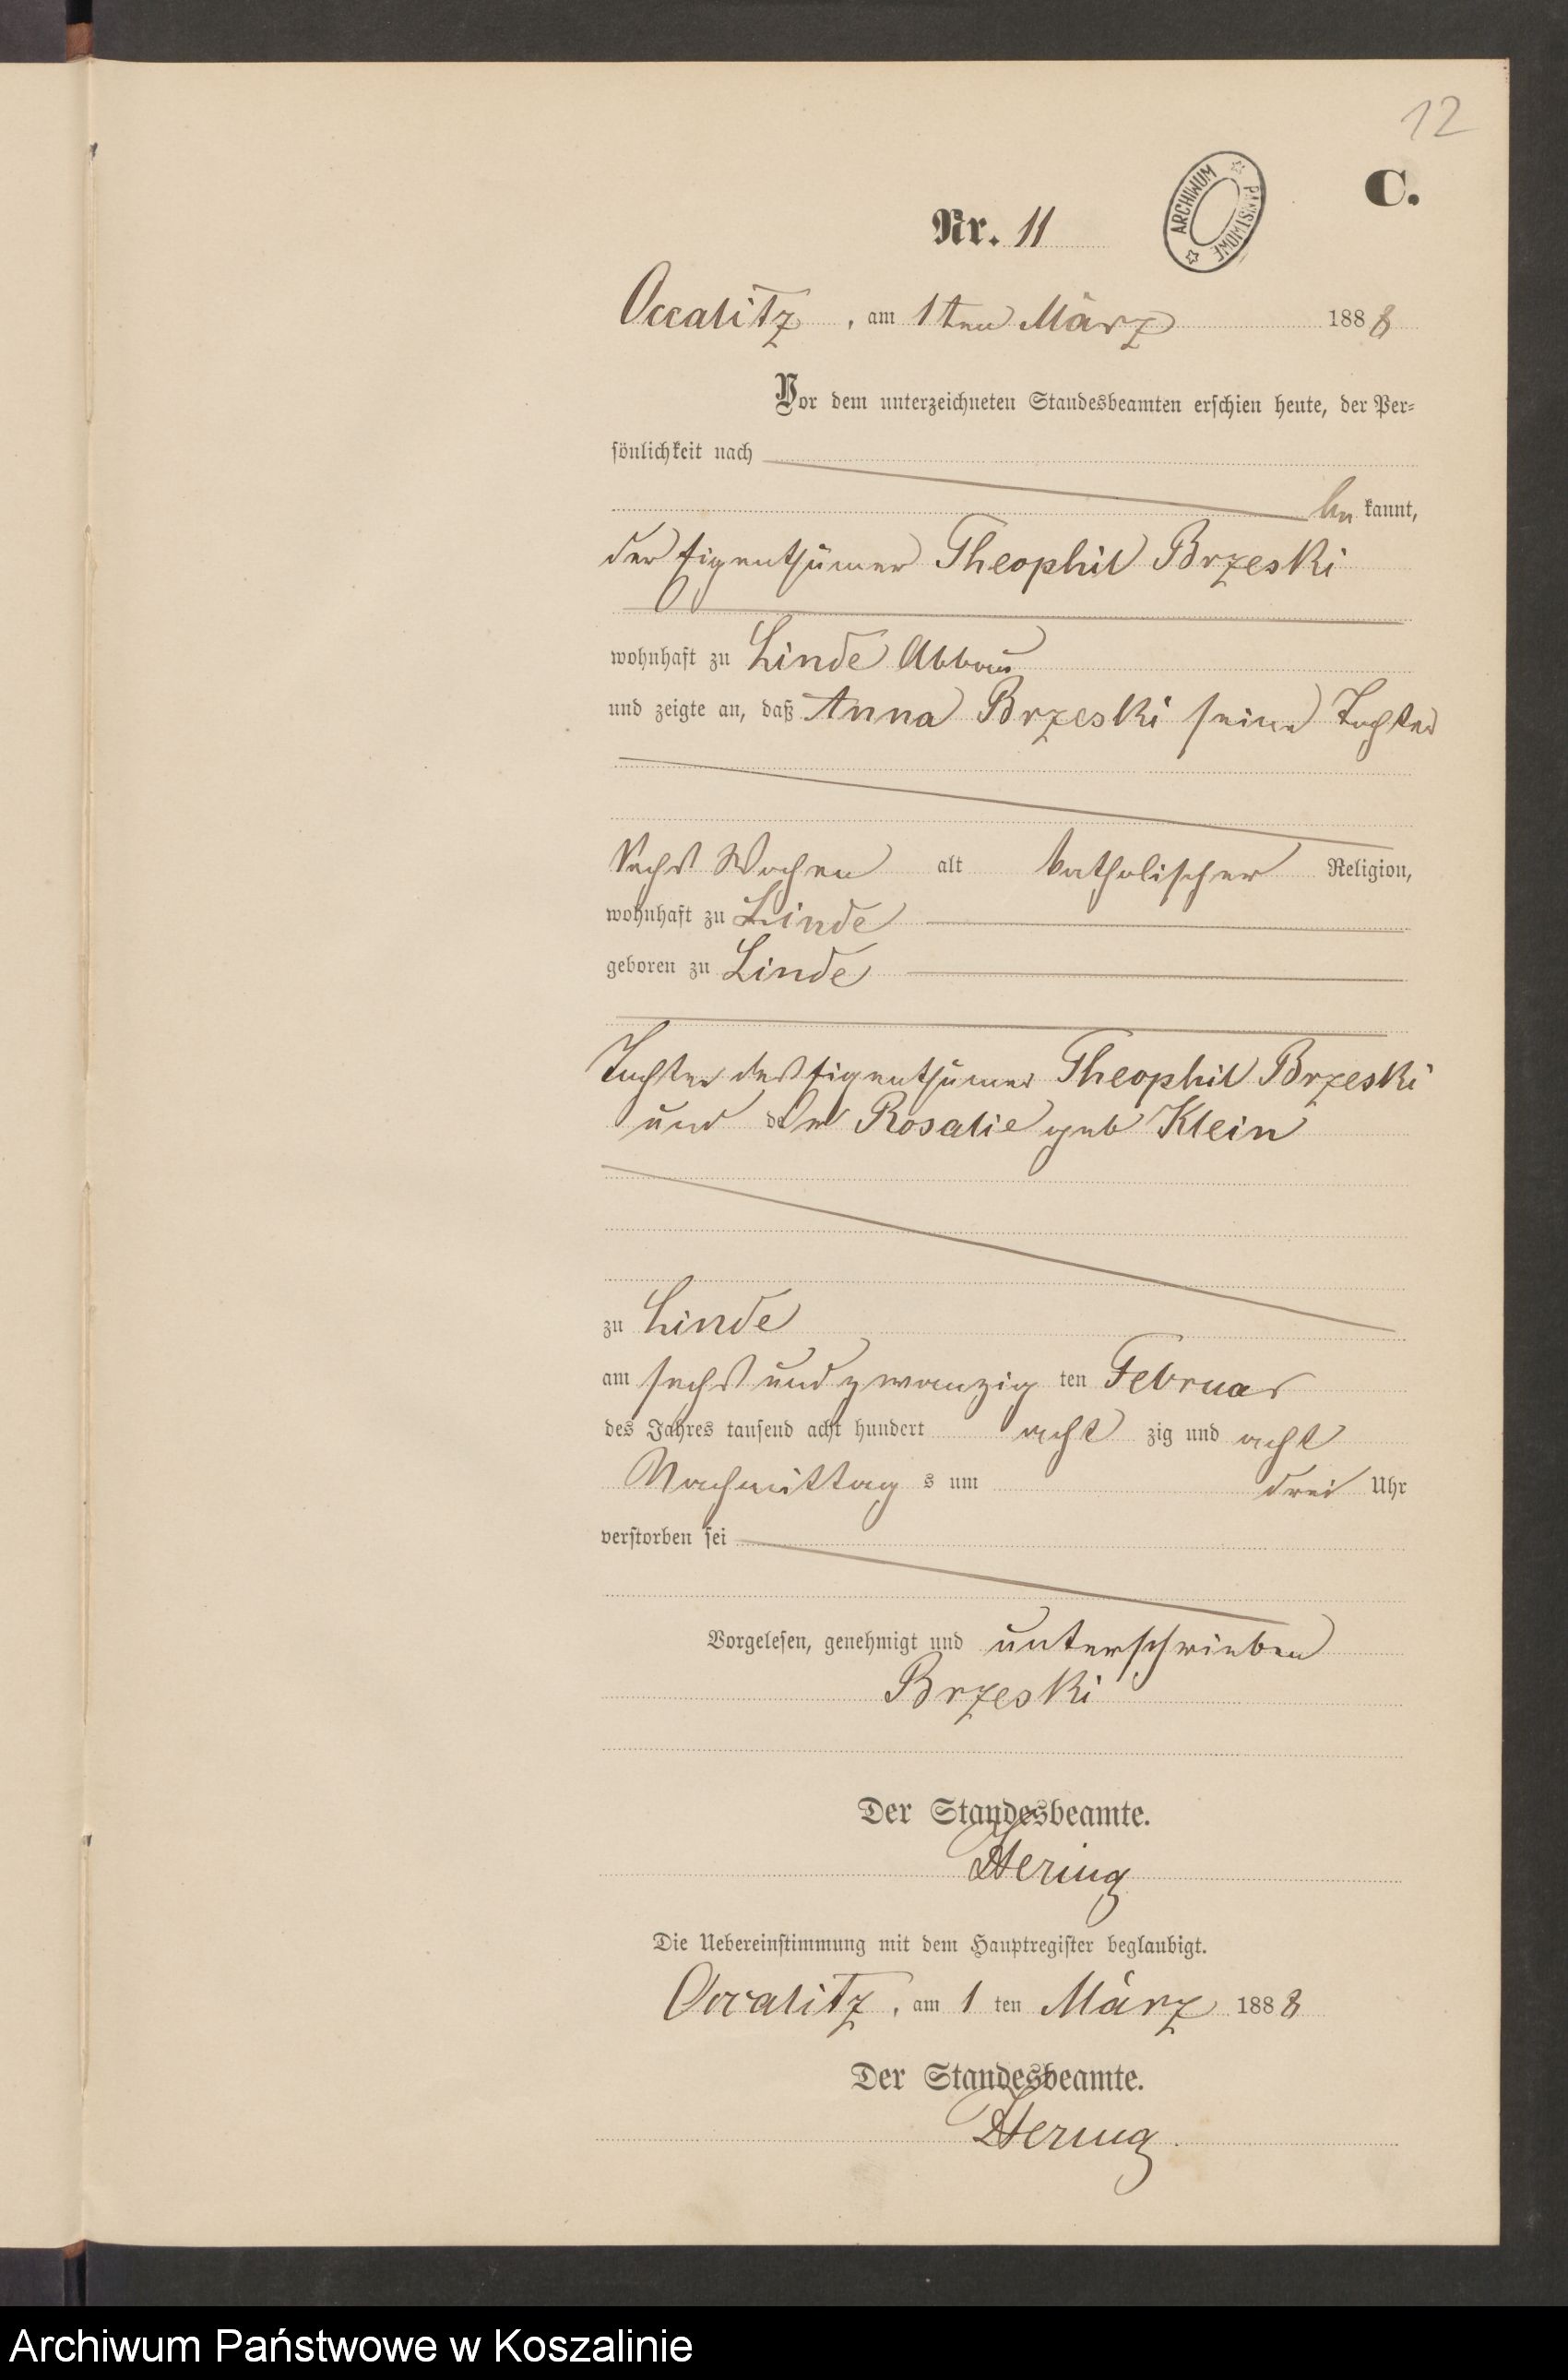 12
C.
Nr. 11
ARCHIWUM PAŃSTWOWE
Occalitz, am 1ten März 1888
Vor dem unterzeichneten Standesbeamten erschien heute, der Per-
sönlichkeit nach
bekannt,
der Eigenthümer Theophil Brzeski
wohnhaft zu Linde Abbau
und zeigte an, daß Anna Brzeski seine Tochter
Sechs Wochen alt katholischer Religion,
wohnhaft zu Linde
geboren zu Linde
Tochter des Eigenthümer Theophil Brzeski
und der Rosalie geb Klein
zu Linde
am sechsundzwanzig ten Februar
des Jahres tausend acht hundert acht zig und acht
Nachmittag s um drei Uhr
verstorben sei
Vorgelesen, genehmigt und unterschrieben
Brzeski
Der Standesbeamte.
Hering
Die Uebereinstimmung mit dem Hauptregister beglaubigt.
Occalitz, am 1 ten März 1888
Der Standesbeamte.
Hering
Archiwum Państwowe w Koszalinie